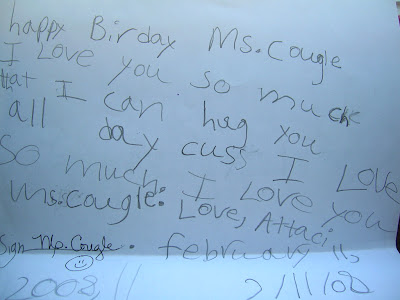 happy Birday Ms.Cougle
I Love you so much
that I can hug you
all day cuss I Love
so much I Love you
Ms.cougle: Love, Attaci
Sign Mp.Cougle. february 11,
2008, 11 2/11/08